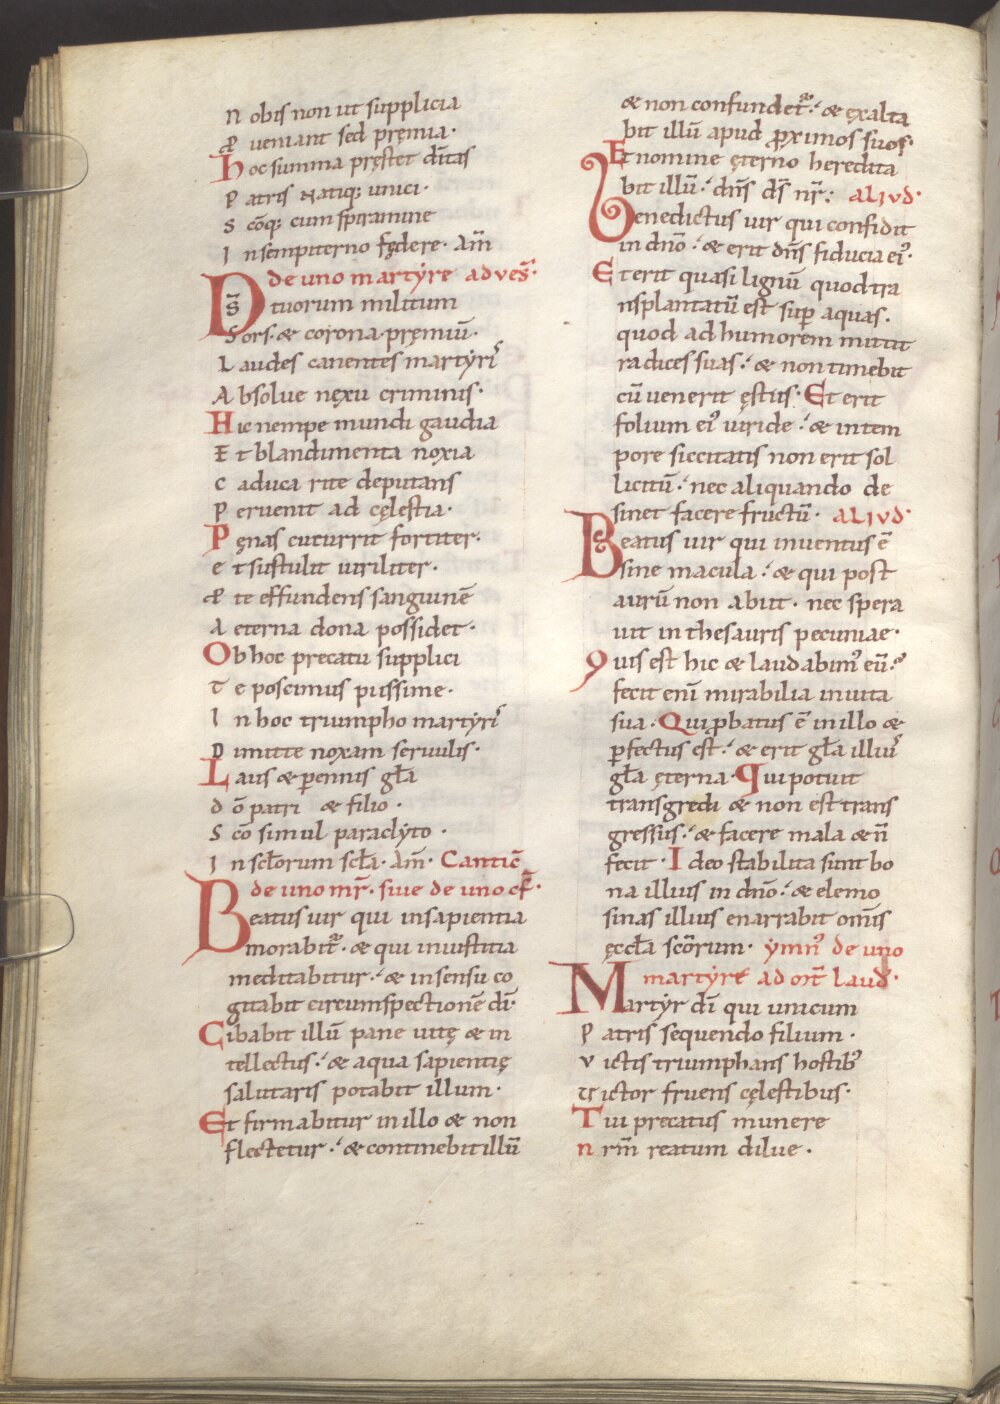 N obis non ut supplicia
P̱ ueniant sed pręmia·
Hoc summa pręstet dīitas
P atris Natiq; unici·
S c̄oq; cum spiramine
I n sempiterno fędere· Am̄
de uno martyre ad ves̄·
D s̄ tuorum militum
Sors· & corona· pręmiū·
L audes canentes martyriˢ
A bsolue nęxu criminis·
Hic nempe mundi gaudia
E t blandimenta noxia
C aduca rite deputans
P eruenit ad cęlestia·
Pęnas cucurrit fortiter·
e t sustulit uiriliter·
P̱ te effundens sanguinē
A eterna dona possidet·
Ob hoc precatu supplici
T e poscimus piissime·
I n hoc triumpho martyriˢ
D imitte noxam seruulis·
Laus & p̱ennis gl̄a
d ō patri & filio·
S c̄o simul paraclyto·
I n sc̄lorum sc̄la· Am̄· Cantic̄
de uno mr̄· siue de uno cf̄·
Beatus uir qui in sapientia
morabitᷣ· & qui in iustitia
meditabitur·́ & in sensu co
gitabit circumspectionē dī·
Cibabit illū pane uitę & in
tellectus·́ & aqua sapientię
salutaris potabit illum·
Et firmabitur in illo & non
flectetur·́ & continebit illū
& non confundetᷣ·́ & ęxalta
bit illū apud ꝓximos suos·
Et nomine ęterno heredita
bit illū·́ dn̄s ds̄ nr̄: aliud·
Benedictus uir qui confidit
in dn̄o·́ & erit dn̄s fiducia ei᾿·
Et erit quasi lignū quod tra
nsplantatū est sup̱ aquas·
quod ad humorem mittit
radices suas·́ & non timebit
cū uenerit ęstus· Et erit
folium ei᾿ uiride·́ & in tem
pore siccitatis non erit sol
licitū·́ nec aliquando de
sinet facere fructū· aliud·
Beatus uir qui inuentus ē
sine macula·́ & qui post
aurū non abiit· nec spera
uit in thesauris pecuniae·
Quis est hic & laudabim᾿ eū·́
fecit eni᷄ mirabilia in uita
sua· Qui ꝓbatus ē in illo &
p̱fectus est·́ & erit gl̄a illiuˢ
gl̄a ęterna· Qui potuit
transgredi & non est trans
gressus·́ & facere mala & n̄
fecit· Ideo stabilita sunt bo
na illius in dn̄o·́ & elemo
sinas illius enarrabit om̄is
ęccl̄a sc̄orum· ymn᾿ de uno
martyre ad ort̄ laud̄·
Martyr dī qui unicum
P atris sequendo filium·
V ictis triumphans hostib᾿
V ictor fruens cęlestibus·
Tui precatus munere
n rm̄ reatum dilue·